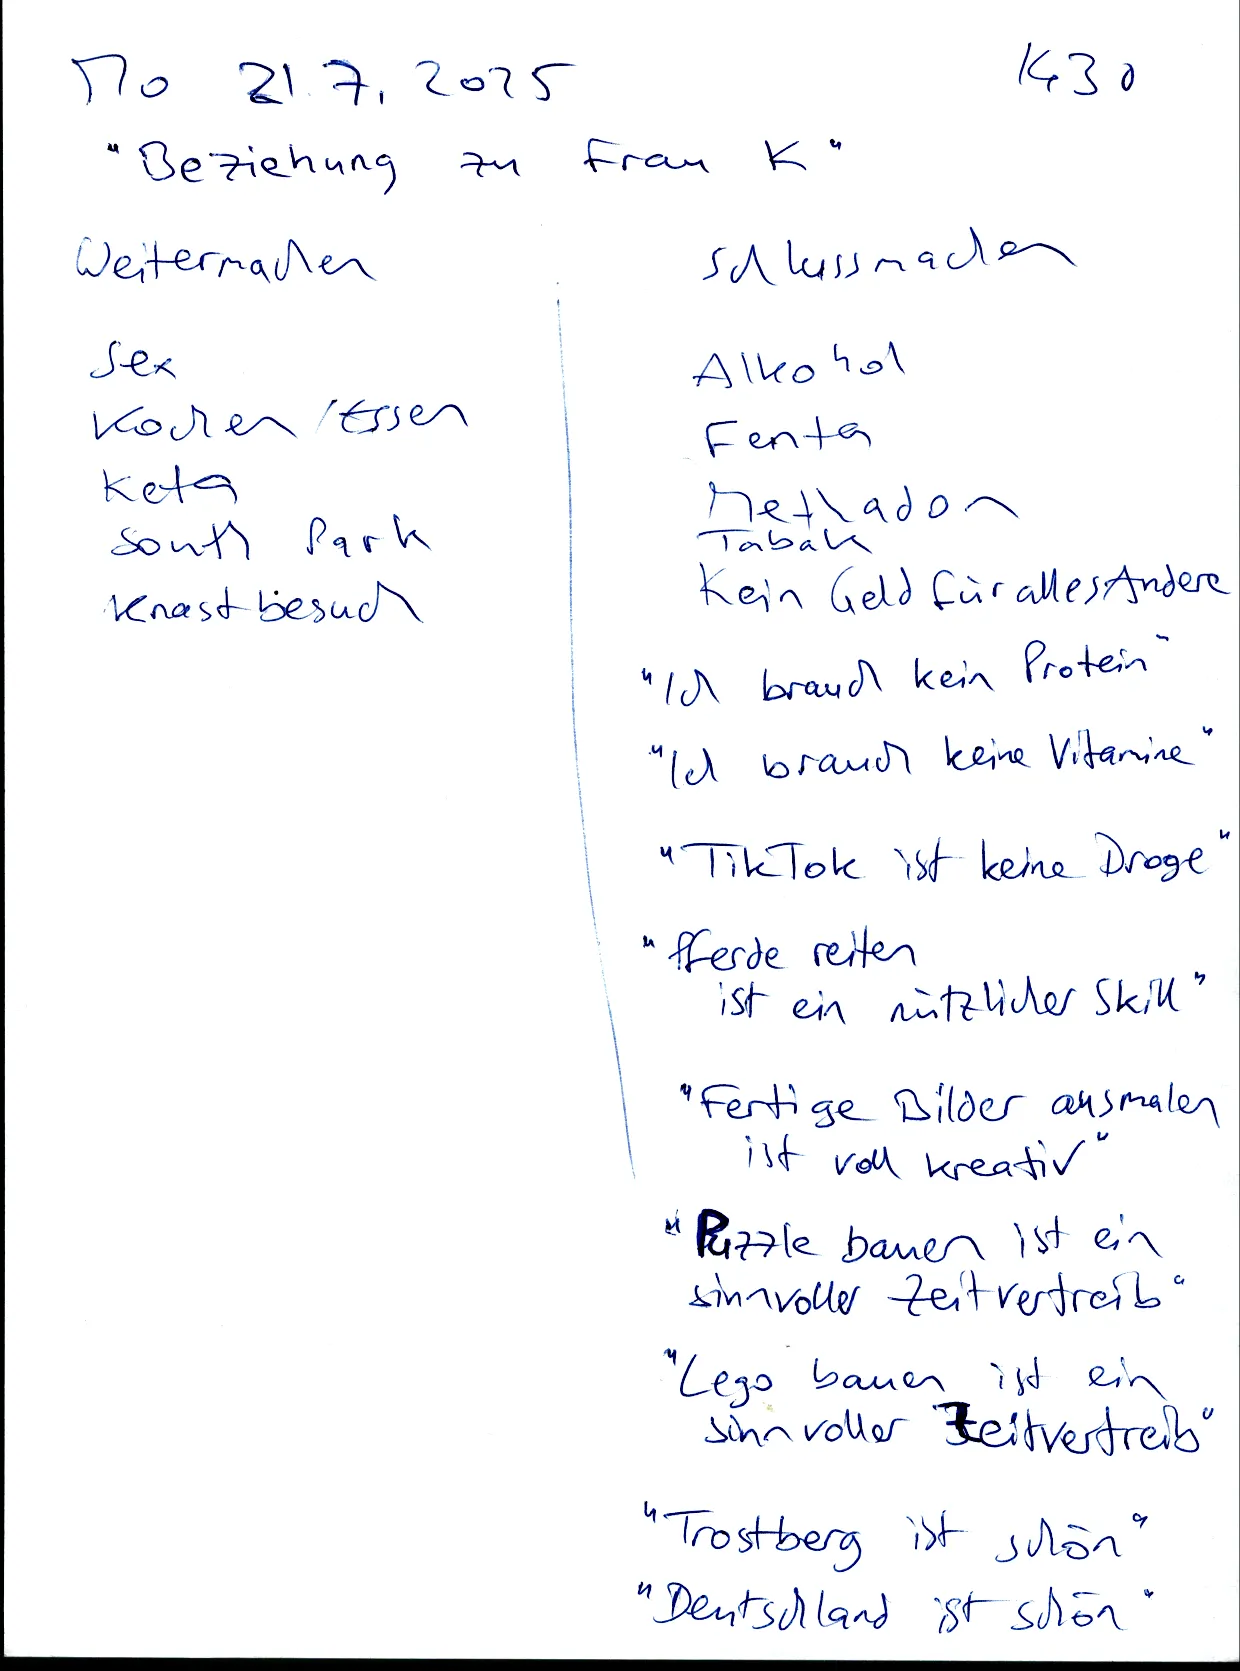 Mo 21.7.2025 1430
"Beziehung zu Frau K"
Weitermachen
Sex
Kochen/Essen
Keta
South Park
Knastbesuch
Schlussmachen
Alkohol
Fenta
Methadon
Tabak
Kein Geld für alles Andere
"Ich brauch kein Protein"
"Ich brauch keine Vitamine"
"TikTok ist keine Droge"
"Pferde reiten
ist ein nützlicher Skill"
"Fertige Bilder ausmalen
ist voll kreativ"
"Puzzle bauen ist ein
sinnvoller Zeitvertreib"
"Lego bauen ist ein
sinnvoller Zeitvertreib"
"Trostberg ist schön"
"Deutschland ist schön"